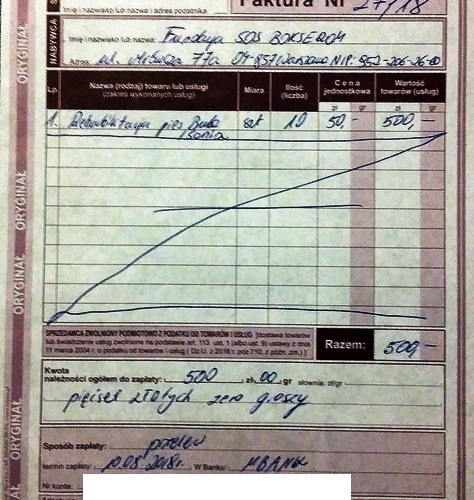 Imię i nazwisko lub nazwa i adres podatnika
Faktura Nr 27/18
NABYWCA
Imię i nazwisko lub nazwa: Fundacja SOS BOKSEROM
Adres: ul. 77a 04-857 Warszawa NIP: 952-206-26-00
Lp. Nazwa (rodzaj) towaru lub usługi (zakres wykonanych usług) Miara Ilość (liczba) Cena jednostkowa Wartość towarów (usług)
zł gr zł gr
1. Rehabilitacja psa szt 10 50,- 500,-
SPRZEDAWCA ZWOLNIONY PODMIOTOWO Z PODATKU OD TOWARÓW I USŁUG [dostawa towarów
lub świadczenie usług zwolnione na podstawie art. 113 ust. 1 (albo ust. 9) ustawy z dnia
11 marca 2004 r. o podatku od towarów i usług ( Dz.U. z 2016 r. poz.710, z późn. zm.) ]
Razem: 500,-
Kwota
należności ogółem do zapłaty: 500 zł 00 gr słownie: zł/gr
pięćset złotych zero groszy
Sposób zapłaty: przelew
termin zapłaty: 10.08.2018r. W Banku: MBANK
Nr konta:
ORYGINAŁ
ORYGINAŁ
ORYGINAŁ
ORYGINAŁ
ORYGINAŁ